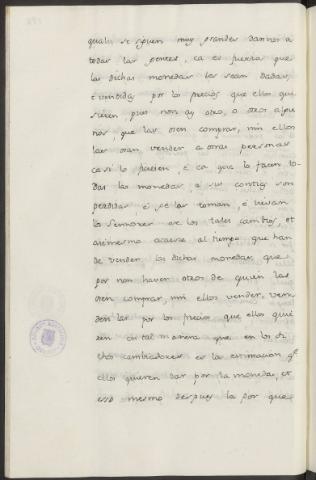 quales se siguen muy grandes dannos a
todas las gentes, ca es fuerza que
las dichas monedas les sean dadas,
e vendidas por los precios que ellos qui
sieren pues non ay otro, o otros algu
nos, que las osen comprar, nin ellos
las osan vender a otras personas
ca si lo facen, e ca que lo facen to
das las monedas, e sus contias son
perdidas, e se las toman, e lievan
los Sennores de los tales cambios, et
asimesmo acaesce al tiempo que han
de vender los dichas monedas que
por non haver otros de quien las
osen comprar, nin ellos vender, ven
den las por los precios que ellos quie
ren en tal manera que en los di
chos cambiadores es la estimacion qe
ellos quieren dar por la moneda, et
esso mesmo despues la por que